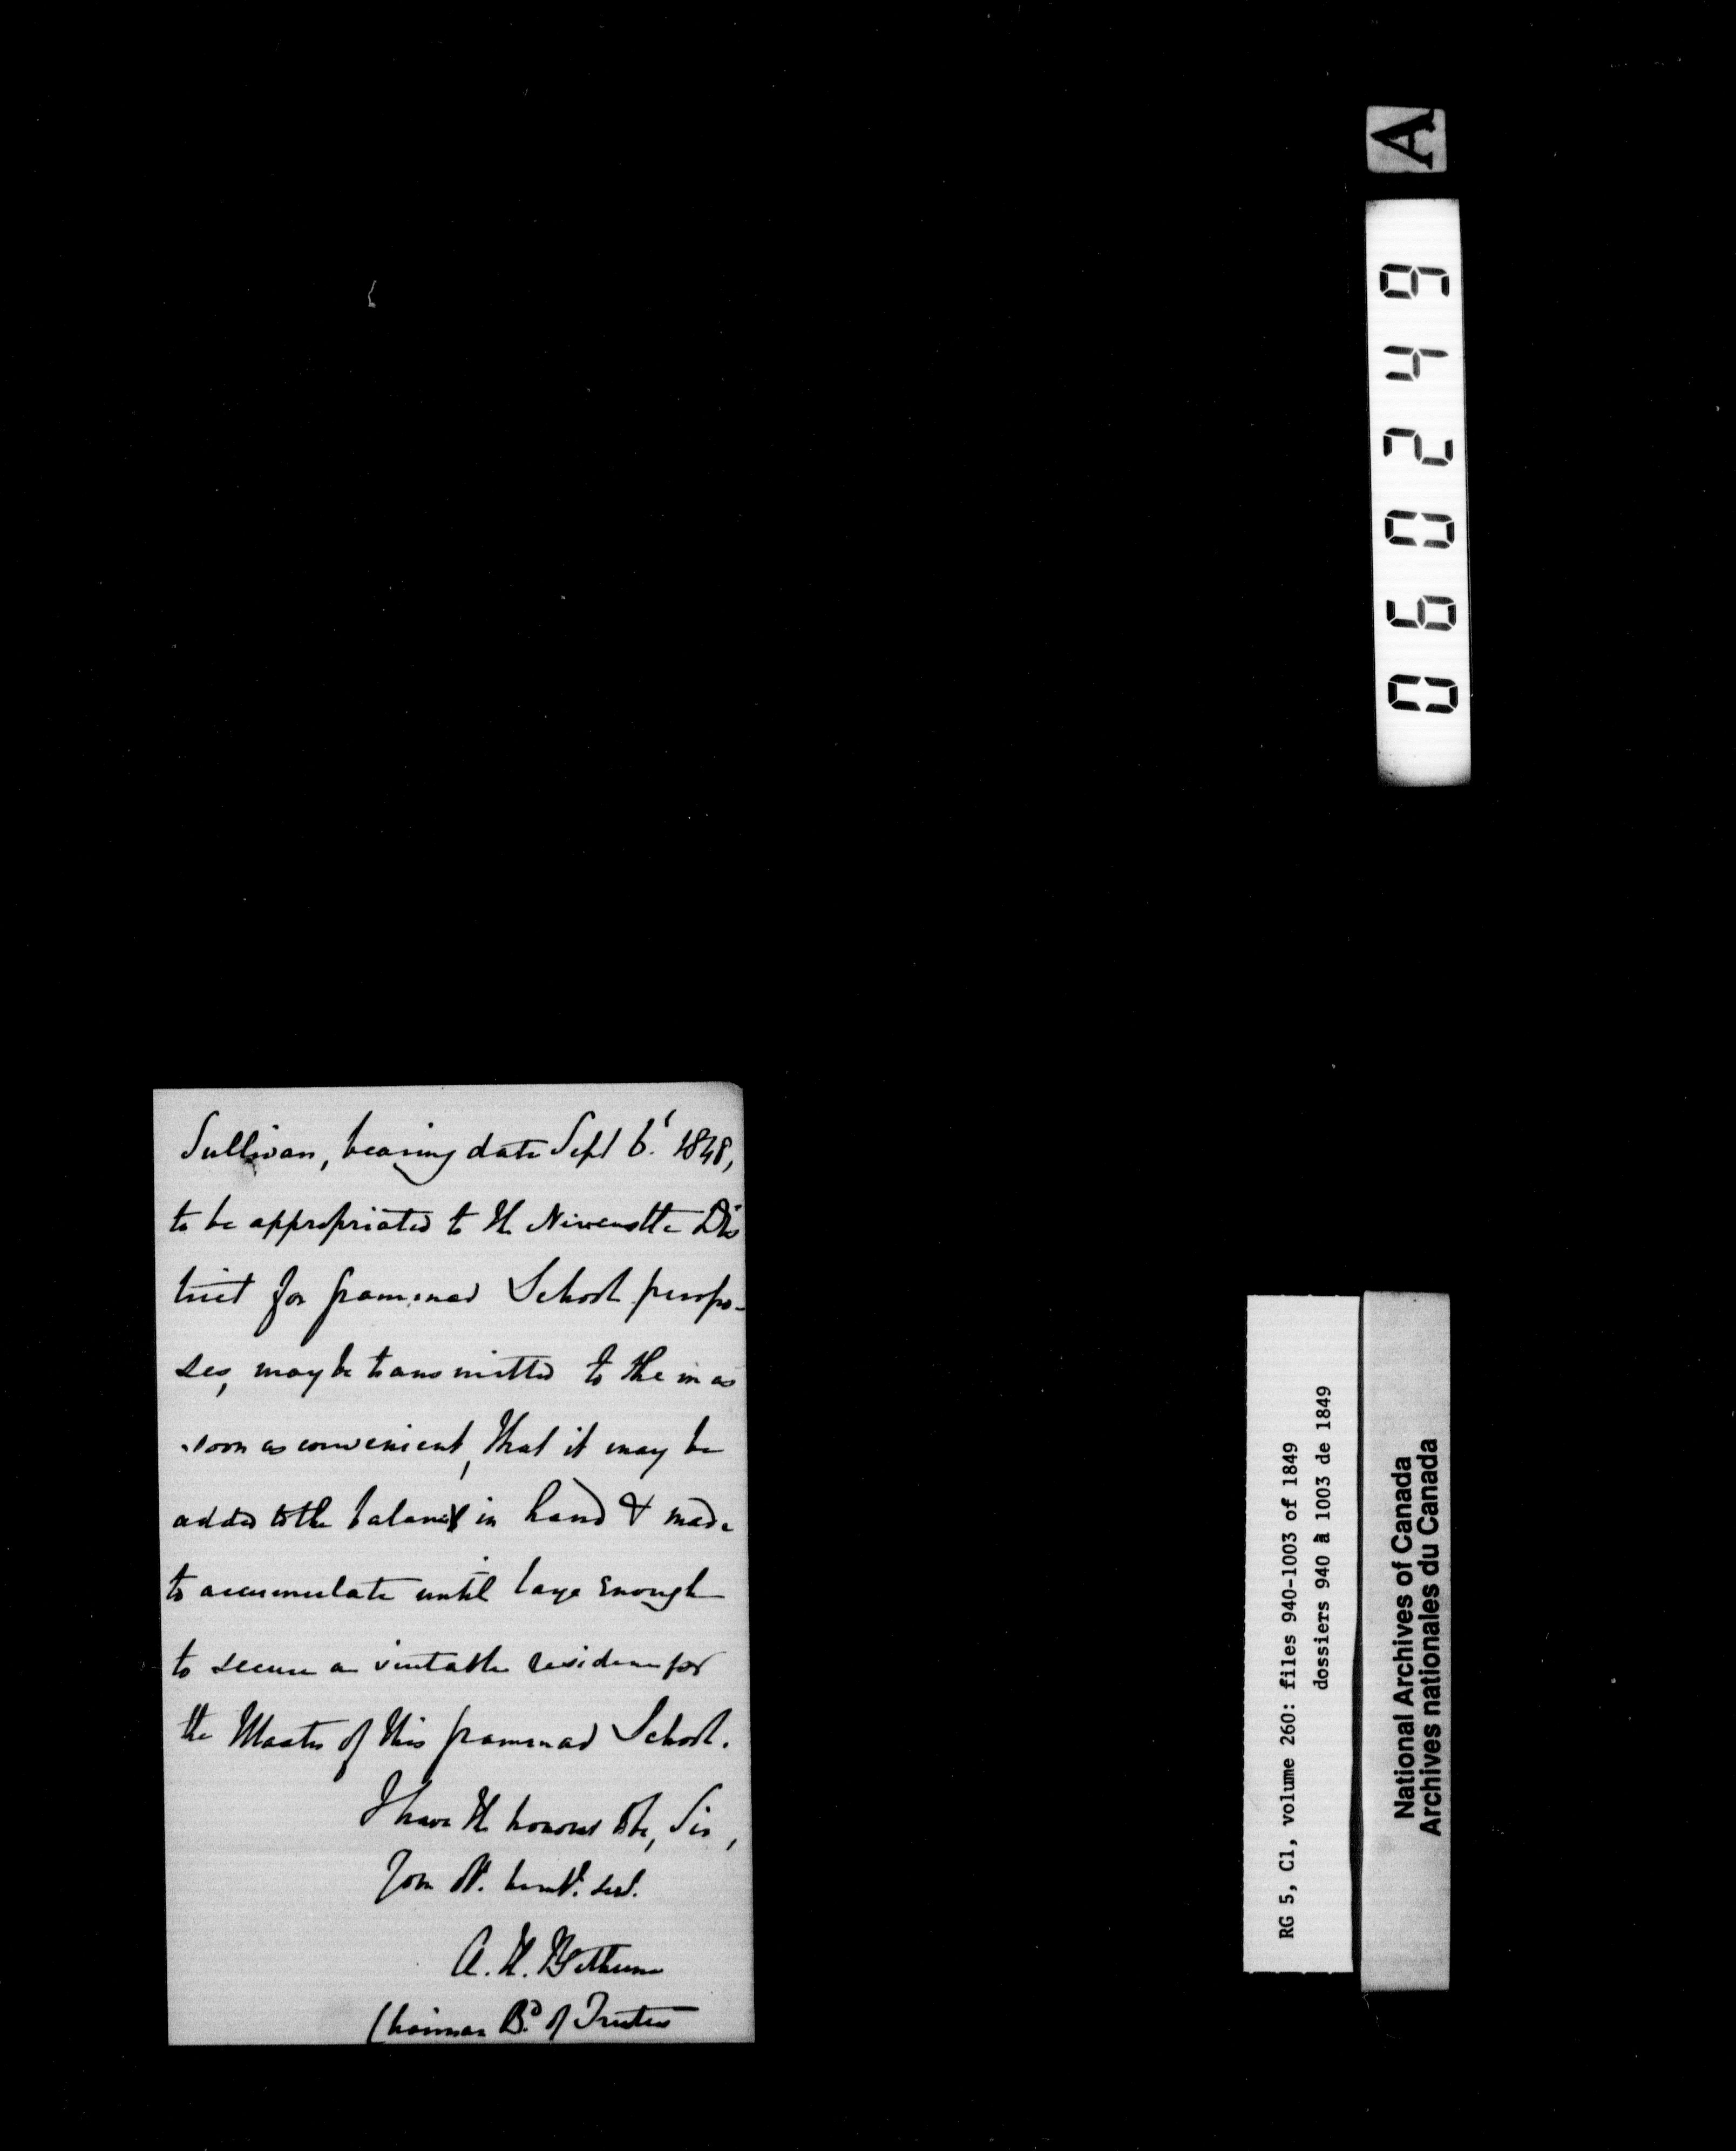 Sullivan, bearing date Sept 6. 1848,
to be appropriated to the Newcastle Dis
trict for Grammar School purpo-
ses, may be transmitted to them as
soon as convenient, that it may be
added to the balance in hand & made
to accumulate until large enough
to secure a suitable residence for
the Master of this Grammar School.
I have the honour to be, Sir,
Your Obt. humb. Sert.
A. N. Bethune
Chairman Bd. of Trustees
A
060249
RG 5, C1, volume 260: files 940-1003 of 1849
dossiers 940 à 1003 de 1849
National Archives of Canada
Archives nationales du Canada